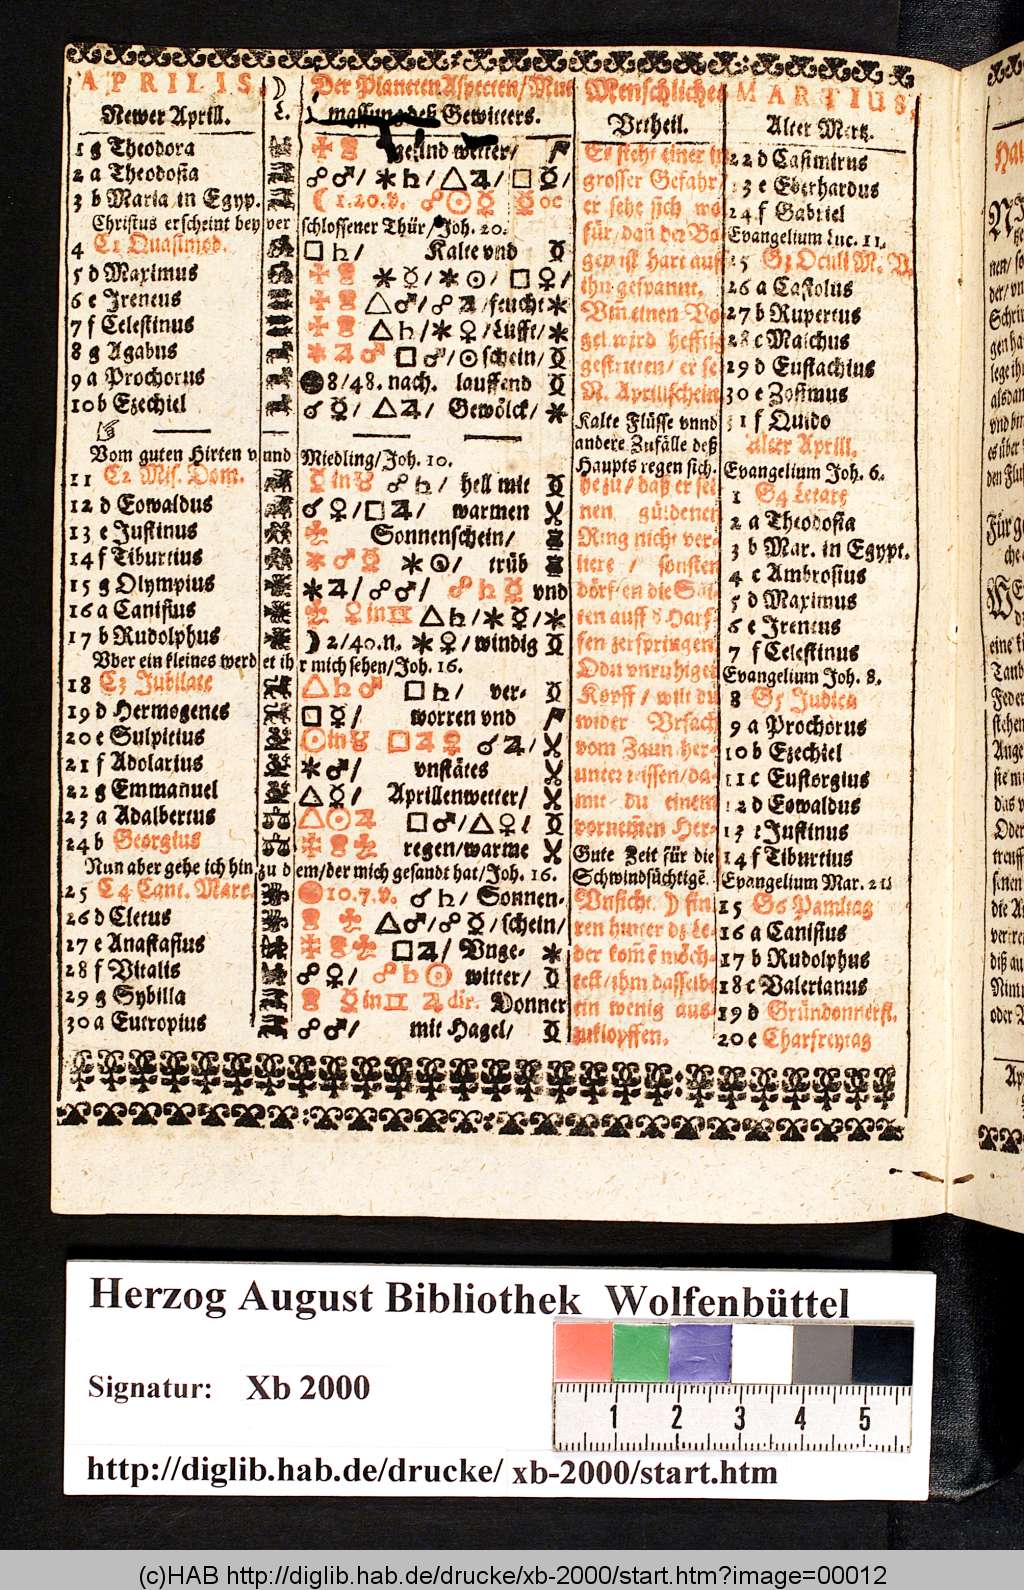 APRILIS.
Newer Aprill.
1 g Theodora
2 a Theodosia
3 b Maria in Egyp.
Christus erscheint bey ver schlossener Thür/ Joh. 20.
4 C1 Quasimod.
5 d Maximus
6 e Ireneus
7 f Celestinus
8 g Agabus
9 a Prochorus
10 b Ezechiel
Vom guten Hirten und Miedling/ Joh. 10.
11 C2 Mis. Dom.
12 d Eowaldus
13 e Justinus
14 f Tiburtius
15 g Olympius
16 a Canisius
17 b Rudolphus
Vber ein kleines werdet ihr mich sehen/ Joh. 16.
18 C3 Jubilate
19 d Hermogenes
20 e Sulpitius
21 f Adolarius
22 g Emmanuel
23 a Adalbertus
24 b Georgius
Nun aber gehe ich hin zu dem/ der mich gesandt hat/ Joh. 16.
25 C4 Cant. Marc.
26 d Cletus
27 e Anastasius
28 f Vitalis
29 g Sybilla
30 a Eutropius
☽
L.
Der Planeten Aspecten/ Mut
massung deß Gewitters.
gelind wetter/
☍♂/ ✶♄/ △♃/ □☿/
☾ 1.20.v. ☍☉☿ ☿ oc
□♄/ Kalte vnd
✶☿/ ✶☉/ □♀/
△♂/ ☍♃/ feucht
△♄/ ✶♀/ Lufft/
✶♃♂ □♂/ ☉schein/
8/48. nach. lauffend
☌☿/ △♃/ Gewölck/
☿ in ♉ ☍♄/ hell mit
☌♀/ □♃/ warmen
Sonnenschein/
✶♂☿ ✶☉/ trüb
✶♃/ ☍♂/ ☍♄☿ vnd
♀ in ♊ △♄/ ✶☿/
☽ 2/40.n. ✶♀/ windig
△♄♂ □♄/ ver-
□☿/ worren vnd
☉ in ♉ □♃♀ ☌♃/
✶♂/ vnstätes
△☿/ Aprillenwetter/
△☉♃ □♂/ △♀/
regen/ warme
10.7.v. ☌♄/ Sonnen-
△♂/ ☍☿/ schein/
□♃/ Vnge-
☍♀/ ☍♄☉ witter/
☿ in ♊ ♃ dir. Donner
☍♂/ mit Hagel/
Menschliches
Vrtheil.
Es steht einer in
grosser Gefahr/
er sehe sich wo
für/ dan der Bo
gen ist hart auf
ihn gespannt.
Vm einen Vo
gel wird hefftig
gestritten/ er se
N. Aprilischein
Kalte Flüsse vnnd
andere Zufälle deß
Haupts regen sich.
hezu/ daß er sei
nen güldenen
Ring nicht ver-
liere / sonsten
dörffen die Sai-
ten auff d Harf-
fen zerspringen.
O du vnruhiger
Kopff / wilt du
wider Vrsach
vom Zaun her-
unter reissen/ da-
mit du einem
vornemen Her-
Gute Zeit für die
Schwindsüchtigē.
Vnsicht. ☽ fin
ren hinter dz Le-
der komē möch-
test/ ihm dasselbe
ein wenig aus-
zuklopffen.
MARTIUS,
Alter Mertz.
22 d Casimirus
23 e Eberhardus
24 f Gabriel
Evangelium Luc. 11.
25 G3 Oculi M. V.
26 a Castolus
27 b Rupertus
28 c Malchus
29 d Eustachius
30 e Zosimus
31 f Quido
Alter Aprill.
Evangelium Joh. 6.
1 G4 Letare
2 a Theodosia
3 b Mar. in Egypt.
4 c Ambrosius
5 d Maximus
6 e Ireneus
7 f Celestinus
Evangelium Joh. 8.
8 G5 Judica
9 a Prochorus
10 b Ezechiel
11 c Eustorgius
12 d Eowaldus
13 e Justinus
14 f Tiburtius
Evangelium Mar. 21
15 G6 Palmtag
16 a Canisius
17 b Rudolphus
18 c Valerianus
19 d Gründonnerst.
20 e Charfreytag
Herzog August Bibliothek Wolfenbüttel
Signatur: Xb 2000
http://diglib.hab.de/drucke/ xb-2000/start.htm
1 2 3 4 5
(c)HAB http://diglib.hab.de/drucke/xb-2000/start.htm?image=00012